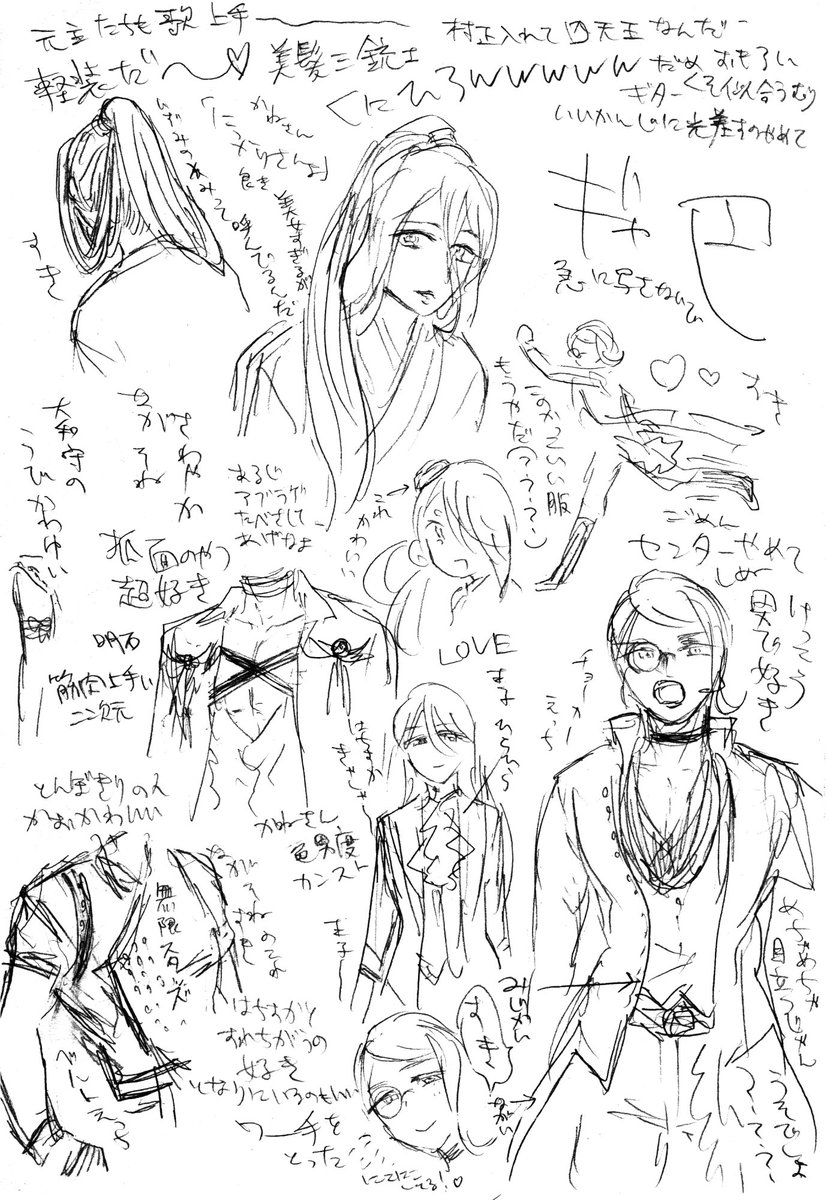 元主たちも歌上手
軽装だ〜♡
美髪三銃士
村正入れて四天王なんだ
くにひろwwwww
だめ おもろい
ギターくそ似合うむり
いいかんじのに光差すのやめて
かねさん
「にっかりさんよ」
良き
いずみのかみって
呼んでるんだ
美女すぎるが
すき
ギャ
急に写さないで
すき
このかっこいい服
もうやだ
さわやか
ながそね
大和守の
うびかわゆい
あるじ
アブラゲ
たべさして
あげなよ
これ
かわいい
狐面のやつ
超好き
明石
筋肉上手い
二次元
ごめん
センターやめて
しぬ
けっこう
男で好き
チョーカー
えっち
LOVE
まえひらひら
はちすか
きゃしゃ
とんぼきりの人
かおかわいい
かねさん
色男度
カンスト
無限
ながそねの
すき
べんしょえっち
はちすかと
すれちがうの
好き
となりにいるのもいい
ワー手を
とった
みじかい
すき
ながい
めちゃめちゃ
目立つじゃん
うそでしょ
にこにこしてる！♡